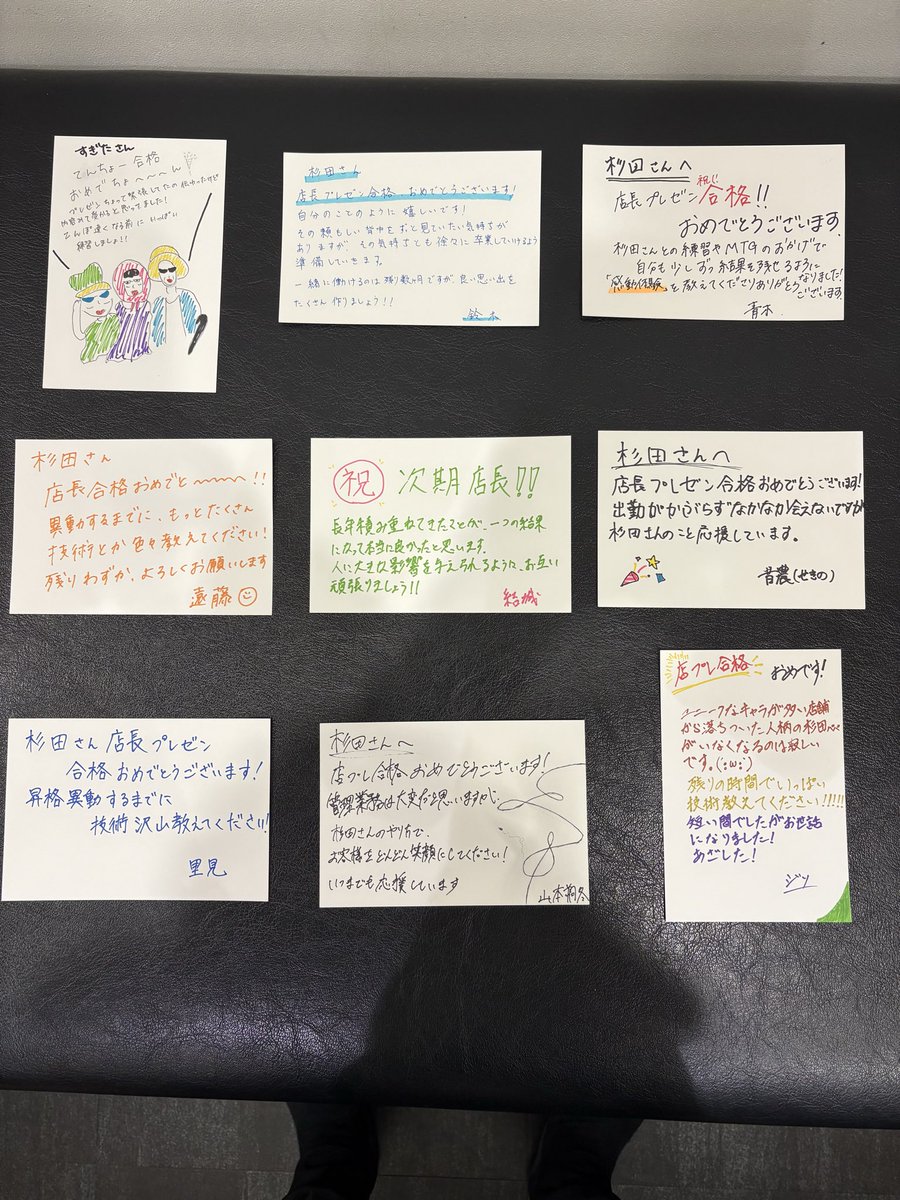 すぎたさん
てんちょー合格
おめでちょ〜〜〜ん!
プレゼンちょって緊張してたの
思ってました!
さんぽ遠くなる前に いっぱい
練習しましょ!!
杉田さん
店長プレゼン合格 おめでとうございます!
自分のことのように嬉しいです!
その頼もしい背中をずっと見ていたい気持ちが
ありますが、その気持ちとも徐々に卒業していけるよう
準備していきます。
一緒に働けるのは残り数ヶ月ですが、良い思い出を
たくさん作りましょう!!
鈴木
杉田さんへ
店長プレゼン 祝 合格!!
おめでとうございます
杉田さんとの練習やMTGのおかげで
自分も少しずつ結果を残せるように
なりました!
「感動体験」を教えてくださりありがとう
ございます
青木
杉田さん
店長合格おめでと〜〜〜〜!!
異動するまでに、もっとたくさん
技術とか色々教えてください!
残りわずか、よろしくお願いします
遠藤
祝 次期店長!!
長年積み重ねてきたことが、一つの結果
になって本当に良かったと思います。
人に大きな影響を与えられるように、お互い
頑張りましょう!!
結城
杉田さんへ
店長プレゼン合格おめでとうございます!
出勤がかぶらずなかなか会えないですが
杉田さんのこと応援しています。
昔農(せきの)
杉田さん 店長プレゼン
合格おめでとうございます!
昇格異動するまでに
技術 沢山教えてください!
里見
杉田さんへ
店プレ合格おめでとうございます!
管理業務は大変だと思いますが、
杉田さんのやり方で、
お客様をどんどん笑顔にしてください!
いつまでも応援しています
山本
店プレ合格 おめです!
ユニークなキャラが多い店舗
から落ちついた人柄の杉田さん
がいなくなるのは寂しい
です。(;ω;)
残りの時間でいっぱい
技術教えてください!!!!!
短い間でしたがお世話
になりました!
あざした!
ジン